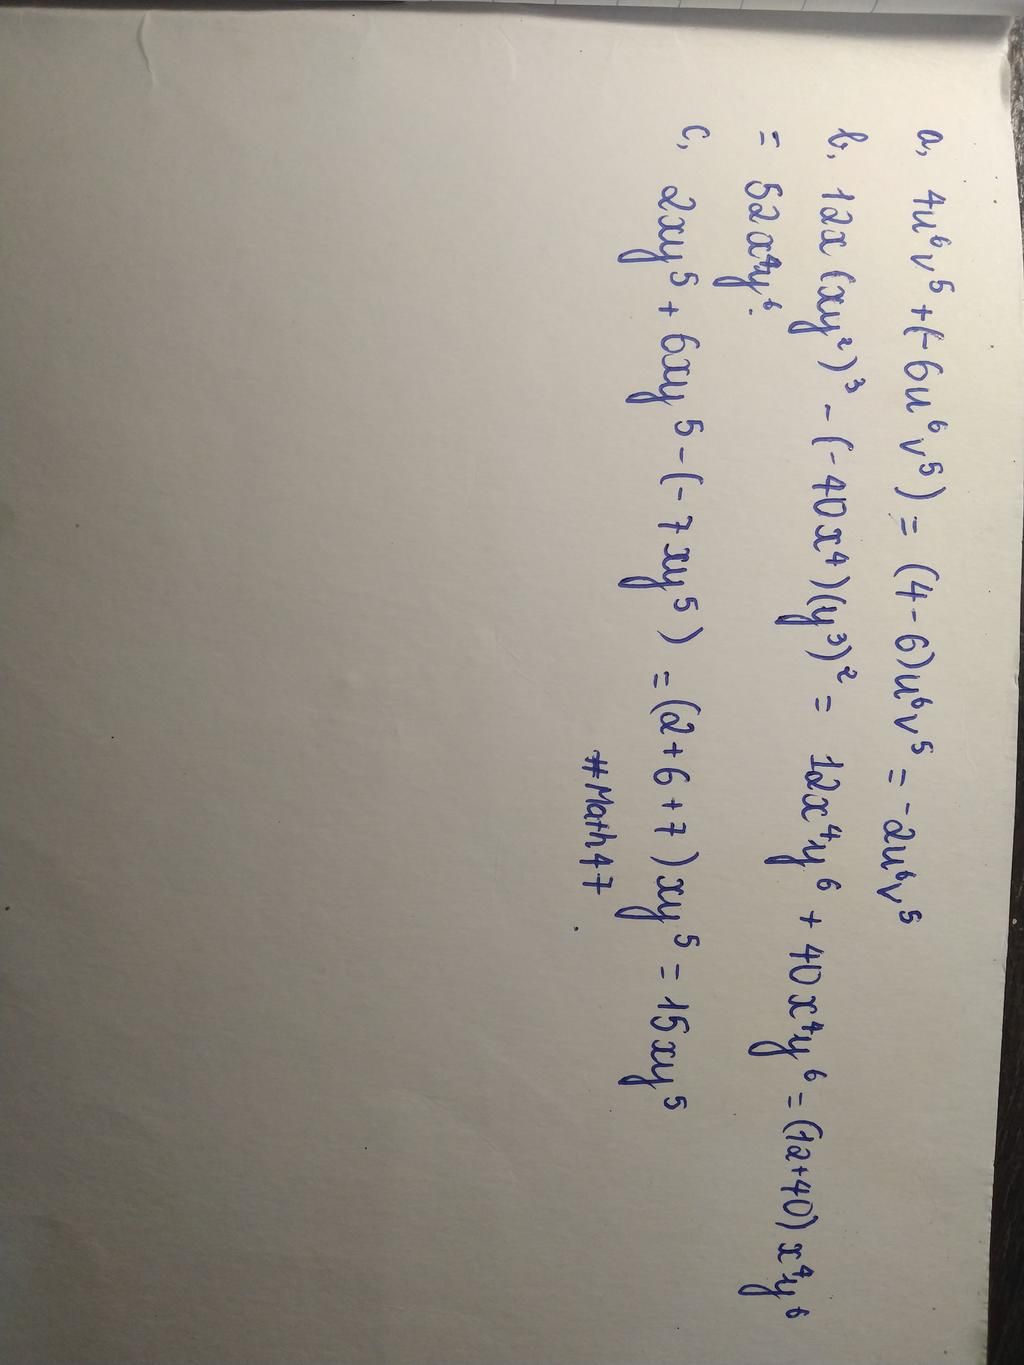 a, 4u⁶v⁵ + (-6u⁶v⁵) = (4-6)u⁶v⁵ = -2u⁶v⁵
b, 12x(xy²)³ - (-40x⁴)(y³)² = 12x⁴y⁶ + 40x⁴y⁶ = (12+40)x⁴y⁶
= 52x⁴y⁶.
c, 2xy⁵ + 6xy⁵ - (-7xy⁵) = (2+6+7)xy⁵ = 15xy⁵
#Math47